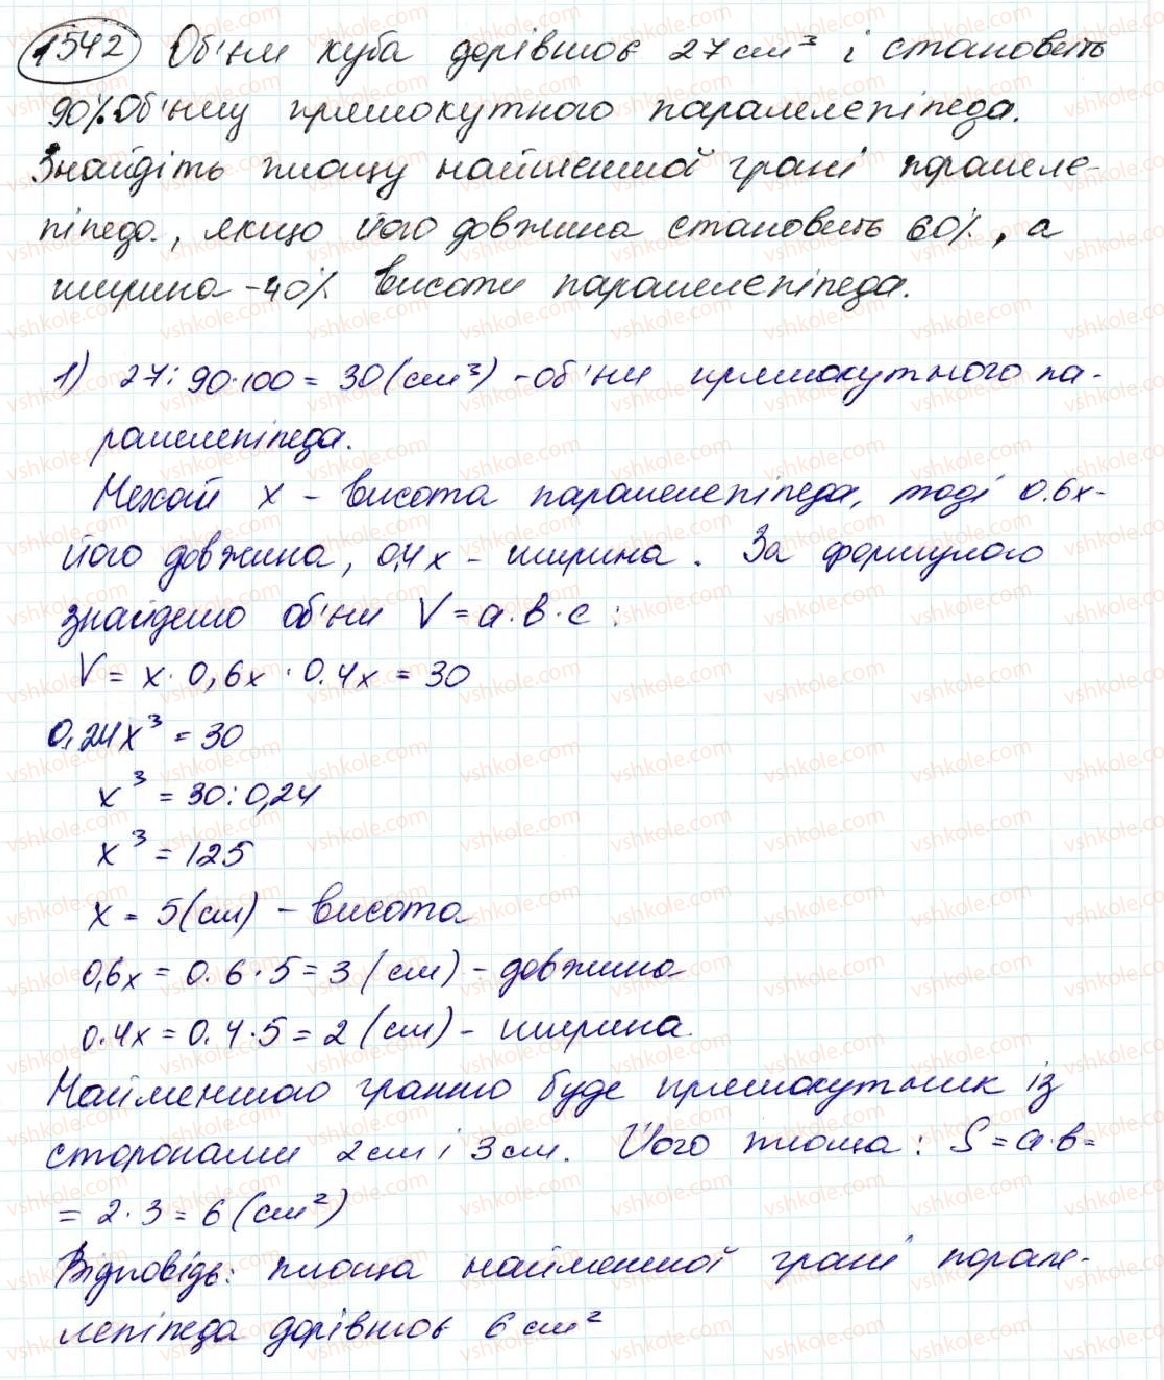 1542 Об'єм куба дорівнює 27 см³ і становить
90% об'єму прямокутного паралелепіпеда.
Знайдіть площу найменшої грані парале-
піпеда, якщо його довжина становить 60%, а
ширина - 40% висоти паралелепіпеда.
1) 27 : 90 · 100 = 30 (см³) - об'єм прямокутного па-
ралелепіпеда.
Нехай x - висота паралелепіпеда, тоді 0.6x-
його довжина, 0,4x - ширина. За формулою
знайдемо об'єм V = a · b · c :
V = x · 0,6x · 0.4x = 30
0,24x³ = 30
x³ = 30 : 0,24
x³ = 125
x = 5 (см) - висота
0,6x = 0.6 · 5 = 3 (см) - довжина
0.4x = 0.4 · 5 = 2 (см) - ширина.
Найменшою гранню буде прямокутник із
сторонами 2 см і 3 см. Його площа: S = a · b =
= 2 · 3 = 6 (см²)
Відповідь: площа найменшої грані парале-
лепіпеда дорівнює 6 см²
vshkole.com